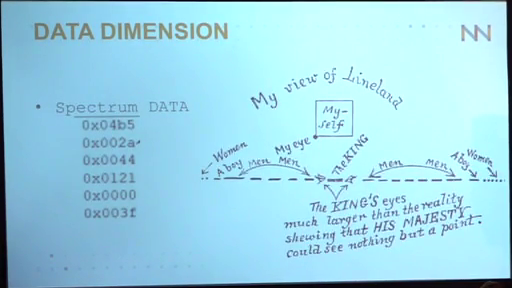 DATA DIMENSION
NN
• Spectrum DATA
0x04b5
0x002a
0x0044
0x0121
0x0000
0x003f
My view of Lineland
My-
self
My eye
The KING
Women
A boy
Men
Men
Men
Men
A boy
Women
The KING'S eyes
much larger than the reality
shewing that HIS MAJESTY
could see nothing but a point.